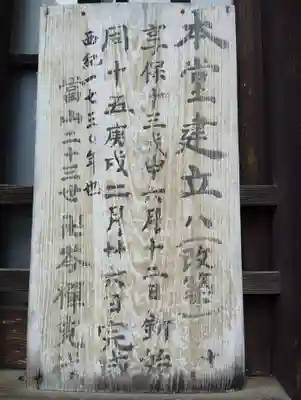 本堂建立八(改築)
享保十三戊申六月十二日釿始
同十五庚戌二月廿六日完成
西紀一七三〇年也
當山二十三世卍苓禪